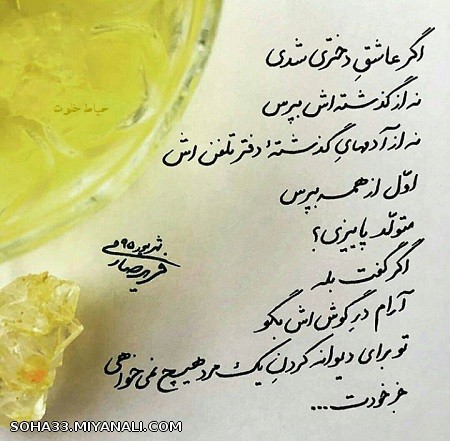 اگر عاشقِ دختری شدی
نه از گذشته‌اش بپرس
نه از آدمهایِ گذشتهٔ دفتر تلفن اش
اوّل از همه بپرس
متولّد پاییزی؟
اگر گفت بله
آرام درِ گوش اش بگو
تو برای دیوانه کردنِ یک مرد هیچ نمی خواهی
جز خودت...
شهریور ۹۵
فرید صارمی
حیاط خلوت
SOHA33.MIYANALI.COM